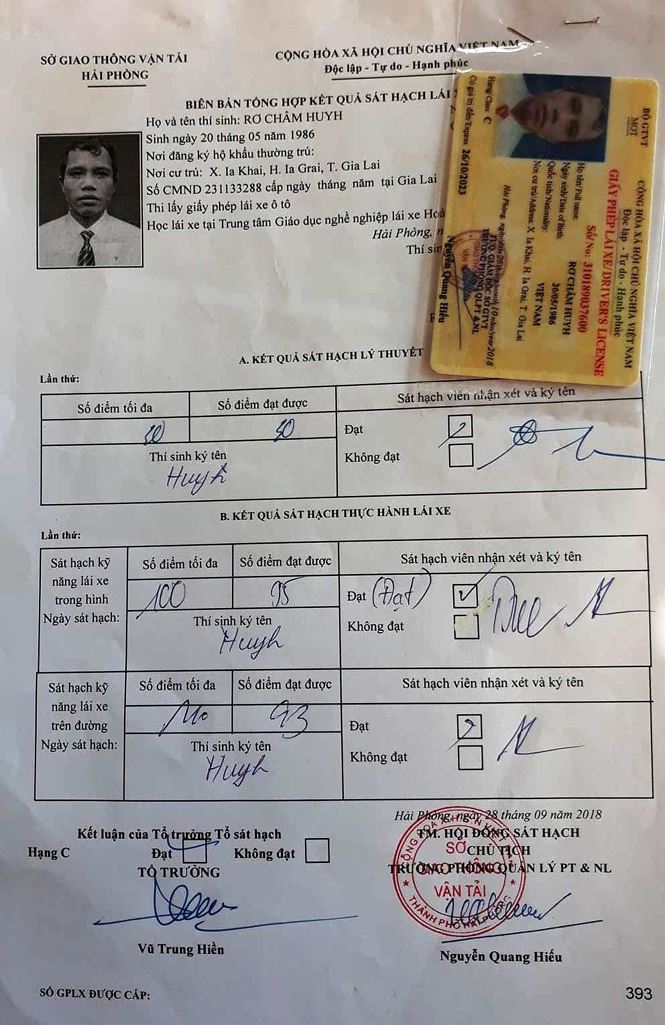 SỞ GIAO THÔNG VẬN TẢI
HẢI PHÒNG
CỘNG HÒA XÃ HỘI CHỦ NGHĨA VIỆT NAM
Độc lập - Tự do - Hạnh phúc
BIÊN BẢN TỔNG HỢP KẾT QUẢ SÁT HẠCH LÁI
Họ và tên thí sinh: RƠ CHÂM HUYH
Sinh ngày 20 tháng 05 năm 1986
Nơi đăng ký hộ khẩu thường trú:
Nơi cư trú: X. Ia Khai, H. Ia Grai, T. Gia Lai
Số CMND 231133288 cấp ngày tháng năm tại Gia Lai
Thi lấy giấy phép lái xe ô tô
Học lái xe tại Trung tâm Giáo dục nghề nghiệp lái xe Hoà
Hải Phòng, n
Thí sin
BỘ GTVT
MOT
CỘNG HÒA XÃ HỘI CHỦ NGHĨA VIỆT NAM
Độc lập - Tự do - Hạnh phúc
GIẤY PHÉP LÁI XE/DRIVER'S LICENSE
Số/No: 310189037600
Họ tên/Full name RƠ CHÂM HUYH
Ngày sinh/Date of Birth 20/05/1986
Quốc tịch/Nationality VIỆT NAM
Nơi cư trú/Address: X. Ia Khai, H. Ia Grai, T. Gia Lai
Hải Phòng, ngày/date 26 tháng/month 10 năm/year 2018
TUQ. GIÁM ĐỐC SỞ GTVT
TRƯỞNG PHÒNG QLPT & NL
Nguyễn Quang Hiếu
Hạng/Class: C
Có giá trị đến/Expires 26/10/2023
A. KẾT QUẢ SÁT HẠCH LÝ THUYẾT
Lần thứ:
Số điểm tối đa
Số điểm đạt được
Sát hạch viên nhận xét và ký tên
30
30
Đạt
Không đạt
Thí sinh ký tên
Huyh
B. KẾT QUẢ SÁT HẠCH THỰC HÀNH LÁI XE
Lần thứ:
Sát hạch kỹ năng lái xe trong hình
Ngày sát hạch:
Số điểm tối đa
Số điểm đạt được
Sát hạch viên nhận xét và ký tên
100
95
Đạt (Đạt)
Không đạt
Thí sinh ký tên
Huyh
Sát hạch kỹ năng lái xe trên đường
Ngày sát hạch:
Số điểm tối đa
Số điểm đạt được
Sát hạch viên nhận xét và ký tên
93
Đạt
Không đạt
Thí sinh ký tên
Huyh
Hải Phòng, ngày 28 tháng 09 năm 2018
Kết luận của Tổ trưởng Tổ sát hạch
Hạng C Đạt Không đạt
TỔ TRƯỞNG
Vũ Trung Hiền
TM. HỘI ĐỒNG SÁT HẠCH
CHỦ TỊCH
TRƯỞNG PHÒNG QUẢN LÝ PT & NL
SỞ
GIAO THÔNG
VẬN TẢI
THÀNH PHỐ HẢI PHÒNG
Nguyễn Quang Hiếu
SỐ GPLX ĐƯỢC CẤP:
393